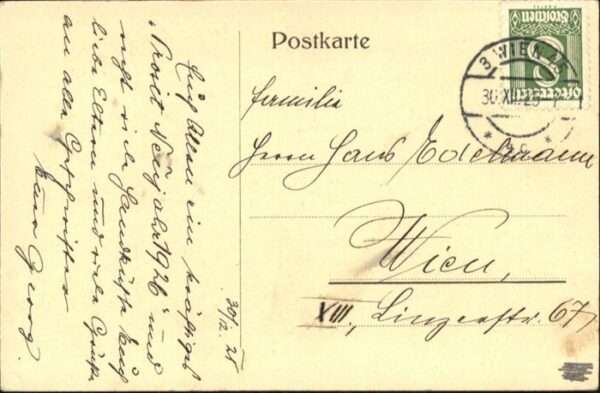 Euch Allen ein kräftiges
"Prosit Neujahr 1926" und
viele Handküsse
liebe Eltern und viele Grüße
an alle Geschwister
Euer Georg.
30/12. 25
Postkarte
Familie
Herrn Hans Edelmann
Wien,
XIII., Linzerstr. 67
Groschen
8
Österreich
WIEN
30.XII.25